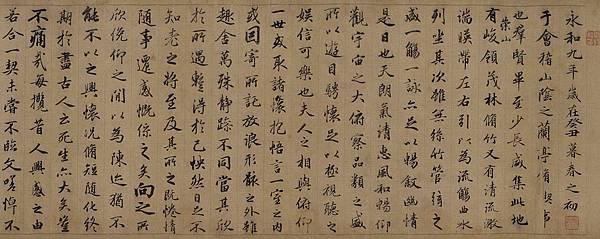 永和九年歲在癸丑暮春之初會
于會稽山陰之蘭亭脩禊事
也羣賢畢至少長咸集此地
崇山
有峻領茂林脩竹又有清流激
湍暎帶左右引以為流觴曲水
列坐其次雖無絲竹管弦之
盛一觴一詠亦足以暢敘幽情
是日也天朗氣清惠風和暢仰
觀宇宙之大俯察品類之盛
所以遊目騁懷足以極視聽之
娛信可樂也夫人之相與俯仰
一世或取諸懷抱悟言一室之內
或因寄所託放浪形骸之外雖
趣舍萬殊靜躁不同當其欣
於所遇暫得於己怏然自足不
知老之將至及其所之既惓情
隨事遷感慨係之矣向之所
欣俛仰之閒以為陳迹猶不
能不以之興懷況脩短隨化終
期於盡古人云死生亦大矣豈
不痛哉每攬昔人興感之由
若合一契未嘗不臨文嗟悼不